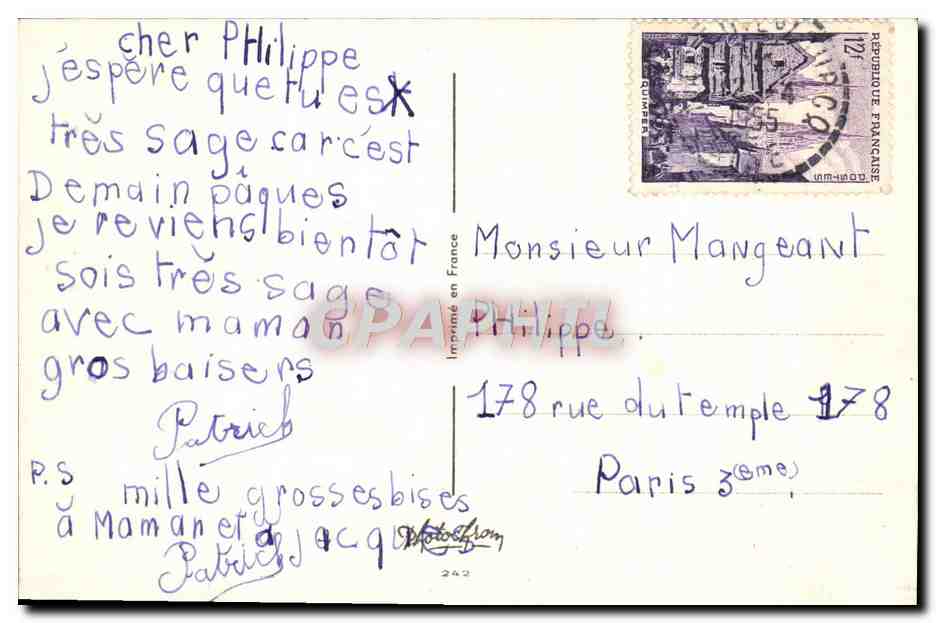 cher PHilippe
j'éspère que tu es
très sage car c'est
Demain pâques
je reviens bientôt
sois très sage
avec maman
gros baisers
Patrick
P.S mille grosses bises
à Maman et à jacques
Patrick
Photochrom
242
Imprimé en France
CPAPHIL
12f
RÉPUBLIQUE FRANÇAISE
POSTES
QUIMPER
55
Monsieur Mangeant
PHilippe.
178 rue du temple 178
Paris 3(eme)